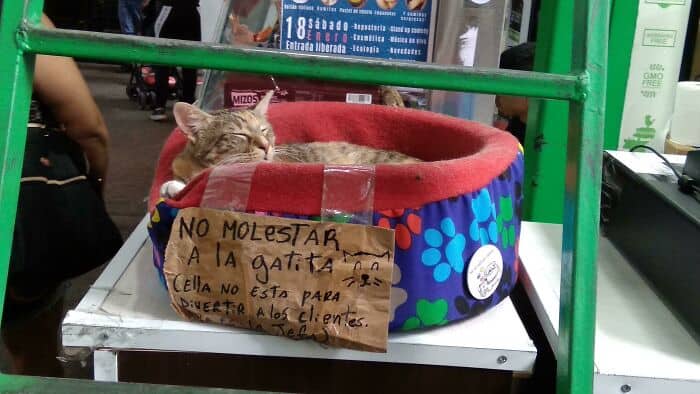 18 Sábado
Enero
Entrada liberada
- Repostería - Stand up comedy
- Cosmética - Música en vivo
- Ecología - Novedades
MIZOS
FREE
GMO
FREE
NO MOLESTAR
A la gatita
Cella no esta para
DIVERTIR A los clientes.
la Jefa